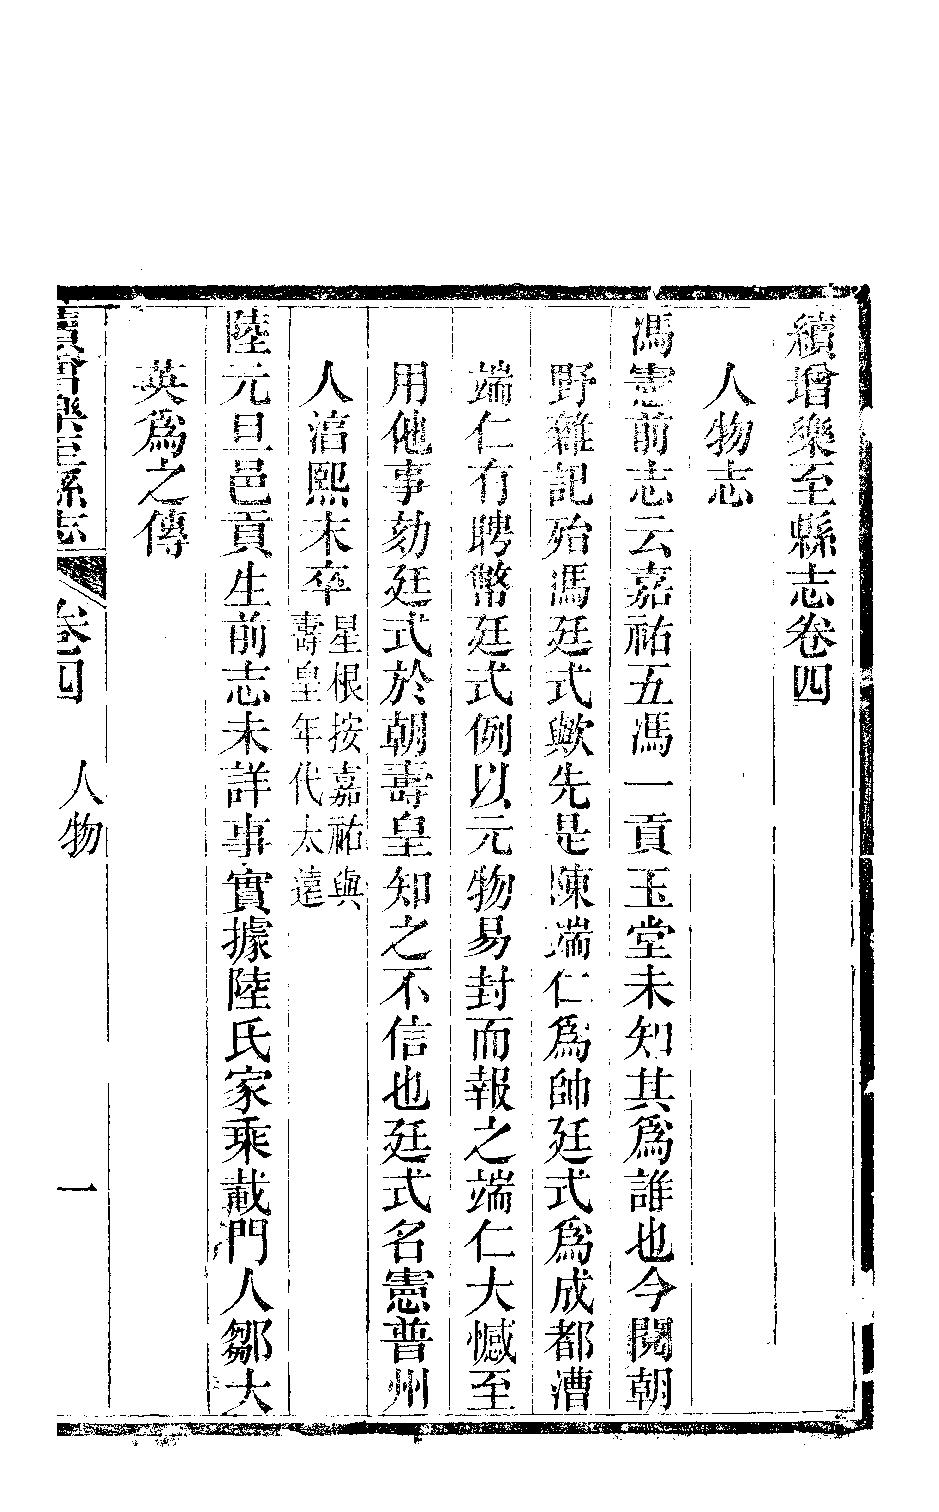 續增樂至縣志卷四
人物志
馮憲前志云嘉祐五馮一貢玉堂未知其為誰也今閱朝
野雜記殆馮廷式歟先是陳端仁為帥廷式為成都漕
端仁有聘幣廷式例以元物易封而報之端仁大憾至
用他事劾廷式於朝壽皇知之不信也廷式名憲普州
人淳熙末卒星根按嘉祐與
壽皇年代太遠
陸元旦邑貢生前志未詳事實據陸氏家乘載門人鄒大
英為之傳
續增樂至縣志 卷四 人物 一